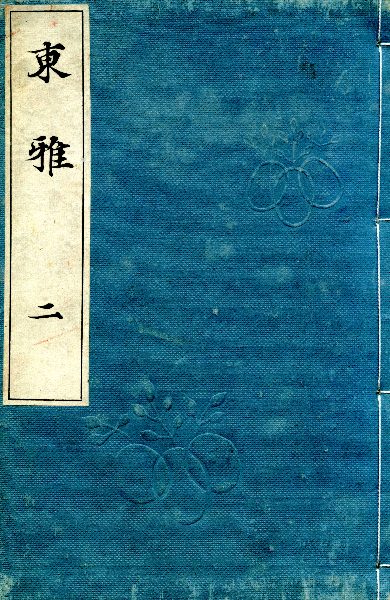 東雅 二